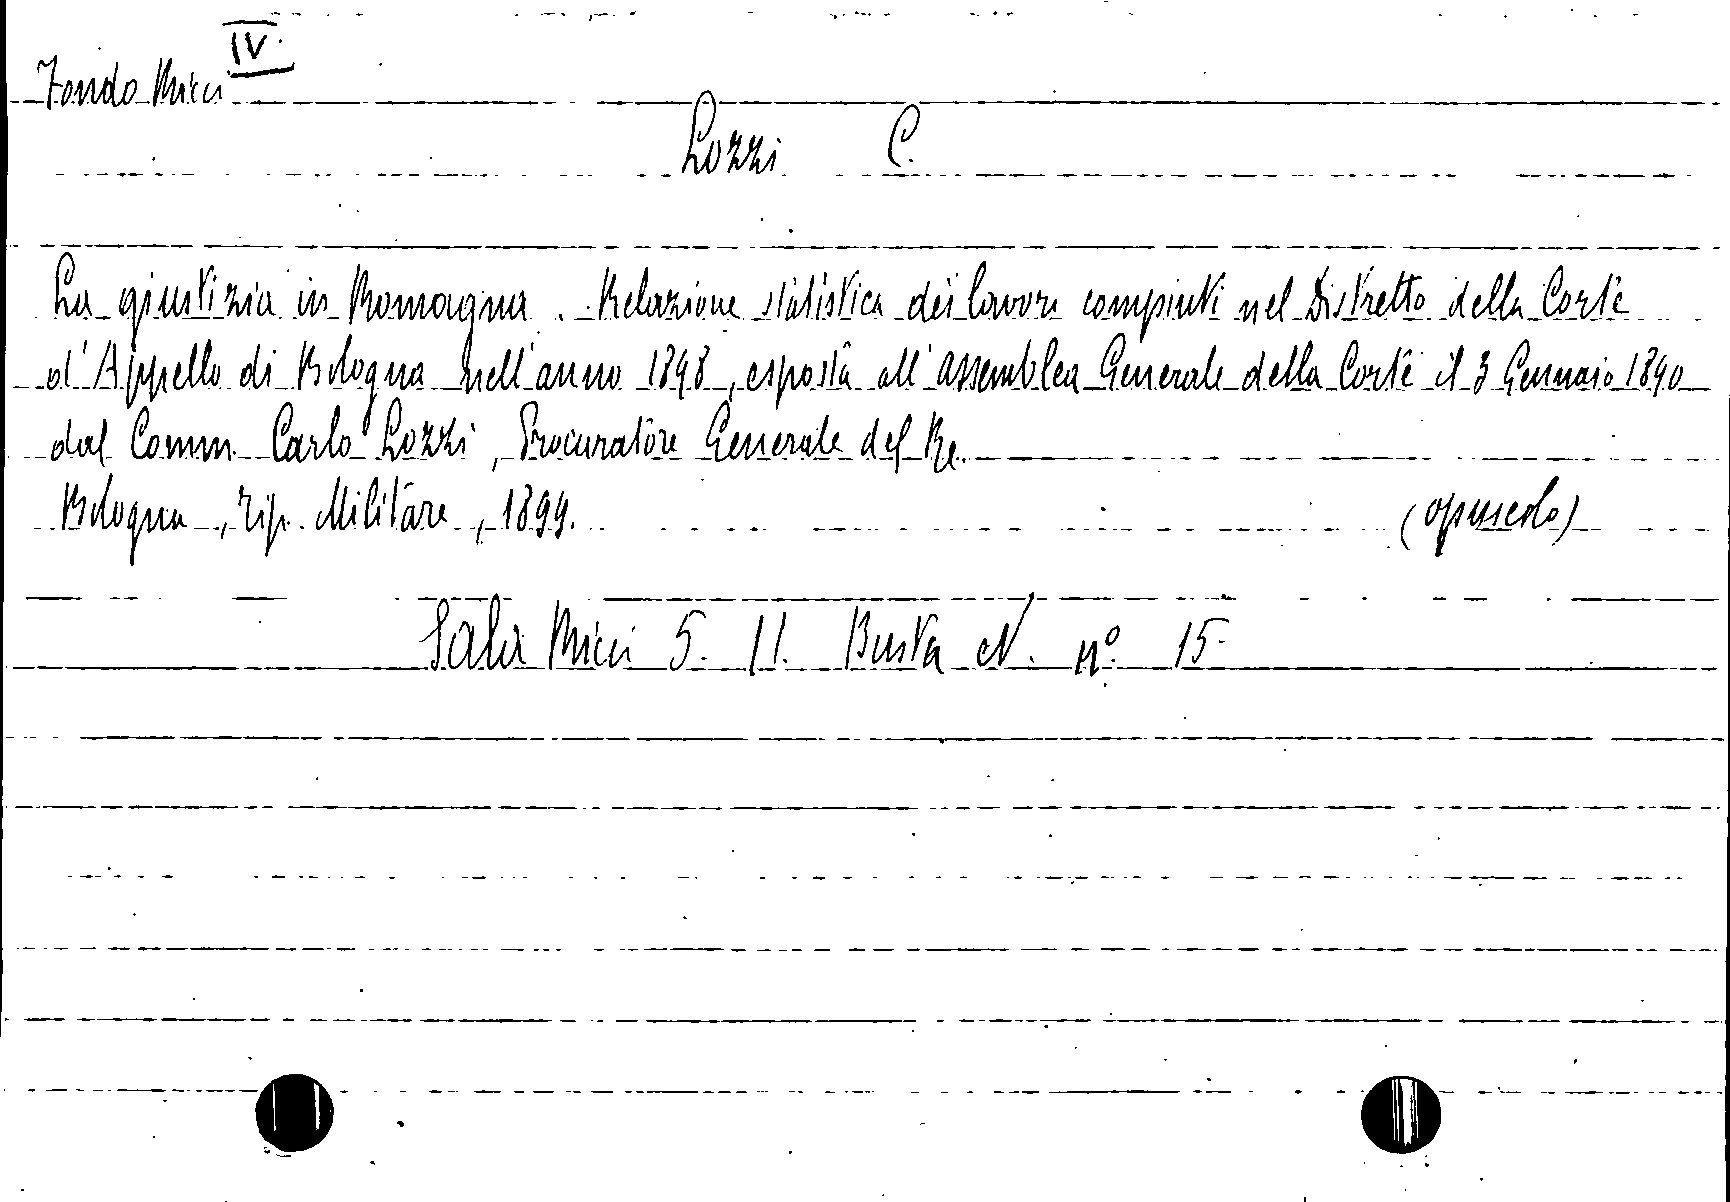 IV.
Fondo Ricci
Lozzi C.
La giustizia in Romagna. Relazione statistica dei lavori compiuti nel Distretto della Corte
d'Appello di Bologna nell'anno 1898, esposta all'assemblea Generale della Corte il 3 Gennaio 1890
dal Comm. Carlo Lozzi, Procuratore Generale del Re.
Bologna, Tip. Militare, 1899. (opuscolo)
Sala Ricci 5. 11. Busta N. n° 15